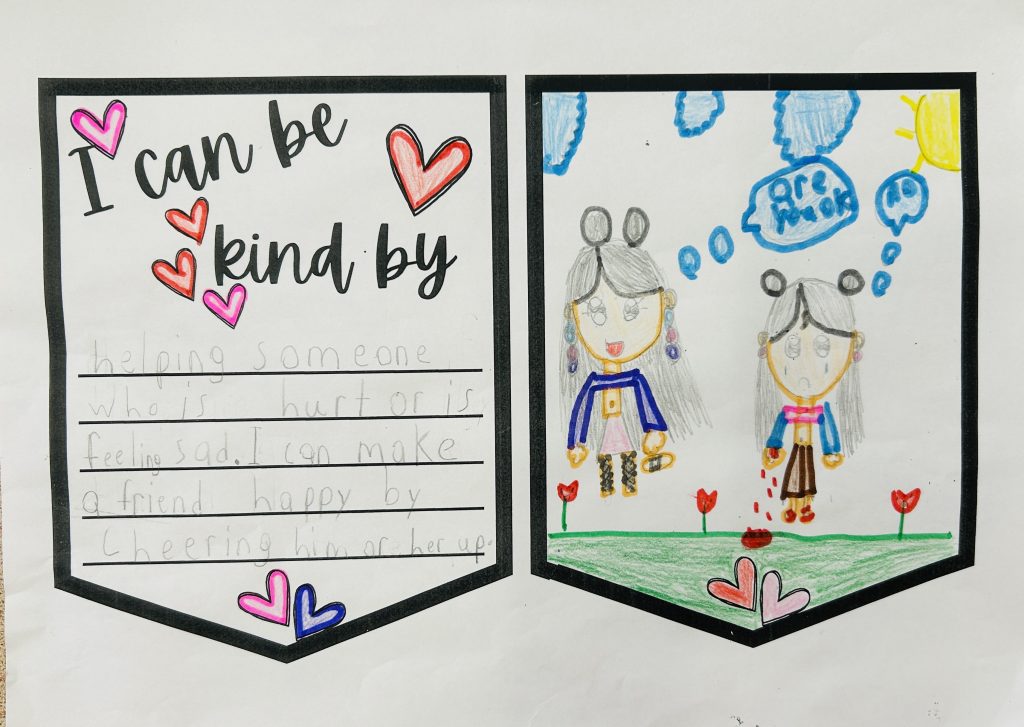 I can be
kind by
helping someone
who is hurt or is
feeling sad. I can make
a friend happy by
Cheering him or her up.
are
you ok
no